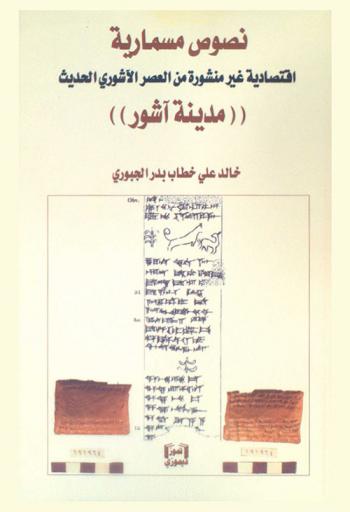 نصوص مسمارية
اقتصادية غير منشورة من العصر الآشوري الحديث
((مدينة آشور))
خالد علي خطاب بدر الجبوري
Obv.
١٩١٩٦٤
١٩١٩٦٤
تموز
ديموزي